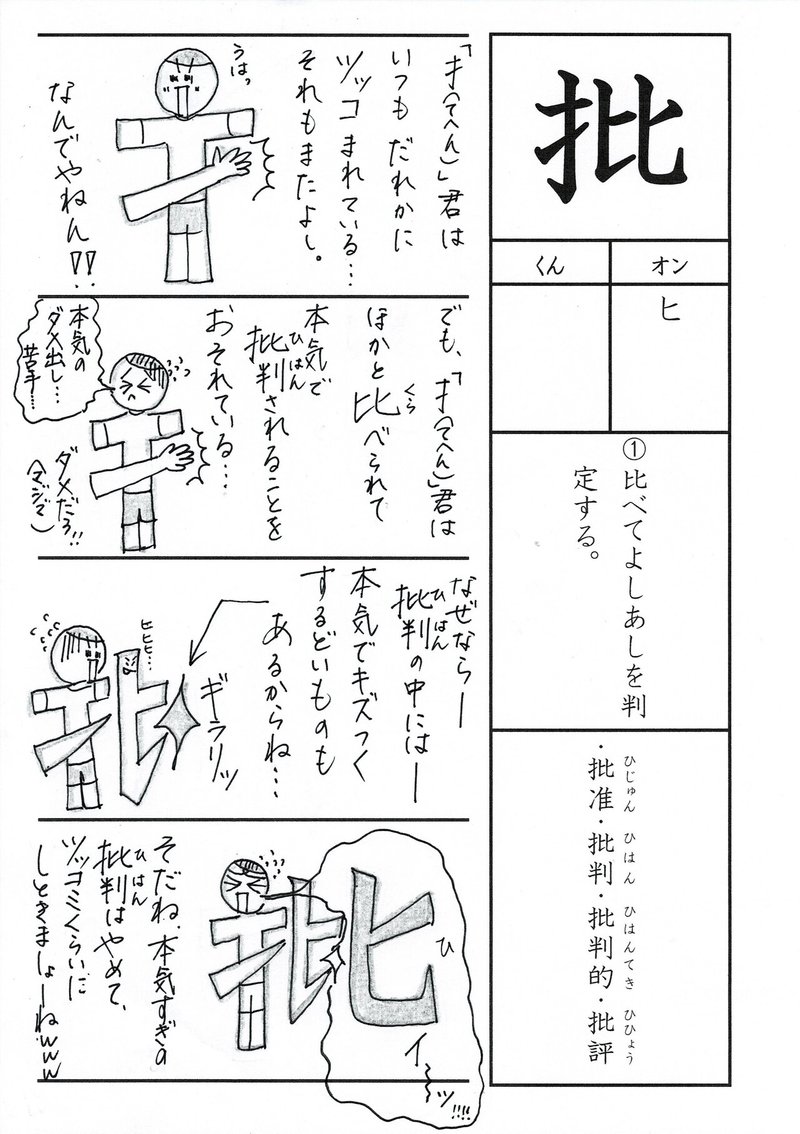 批
オン
くん
ヒ
①比べてよしあしを判
定する。
ひじゅん ひはん ひはんてき ひひょう
・批准・批判・批判的・批評
「扌(てへん)」君は
いつもだれかに
ツッコまれている…
それもまたよし。
うはっ
なんでやねん!!
でも、「扌(てへん)」君は
ほかと比べられて
くら
本気で
批判されることを
ひはん
おそれている…
本気の
ダメ出し…
苦手…
ダメだろ!!
(マジで)
なぜならー
批判の中にはー
ひはん
本気でキズつく
するどいものも
あるからね…
ギラリッ
ヒヒヒ…
批
ヒ
ひ
イーッ!!!!
そだね、本気すぎの
批判はやめて、
ひはん
ツッコミくらいに
しときましょーねwww